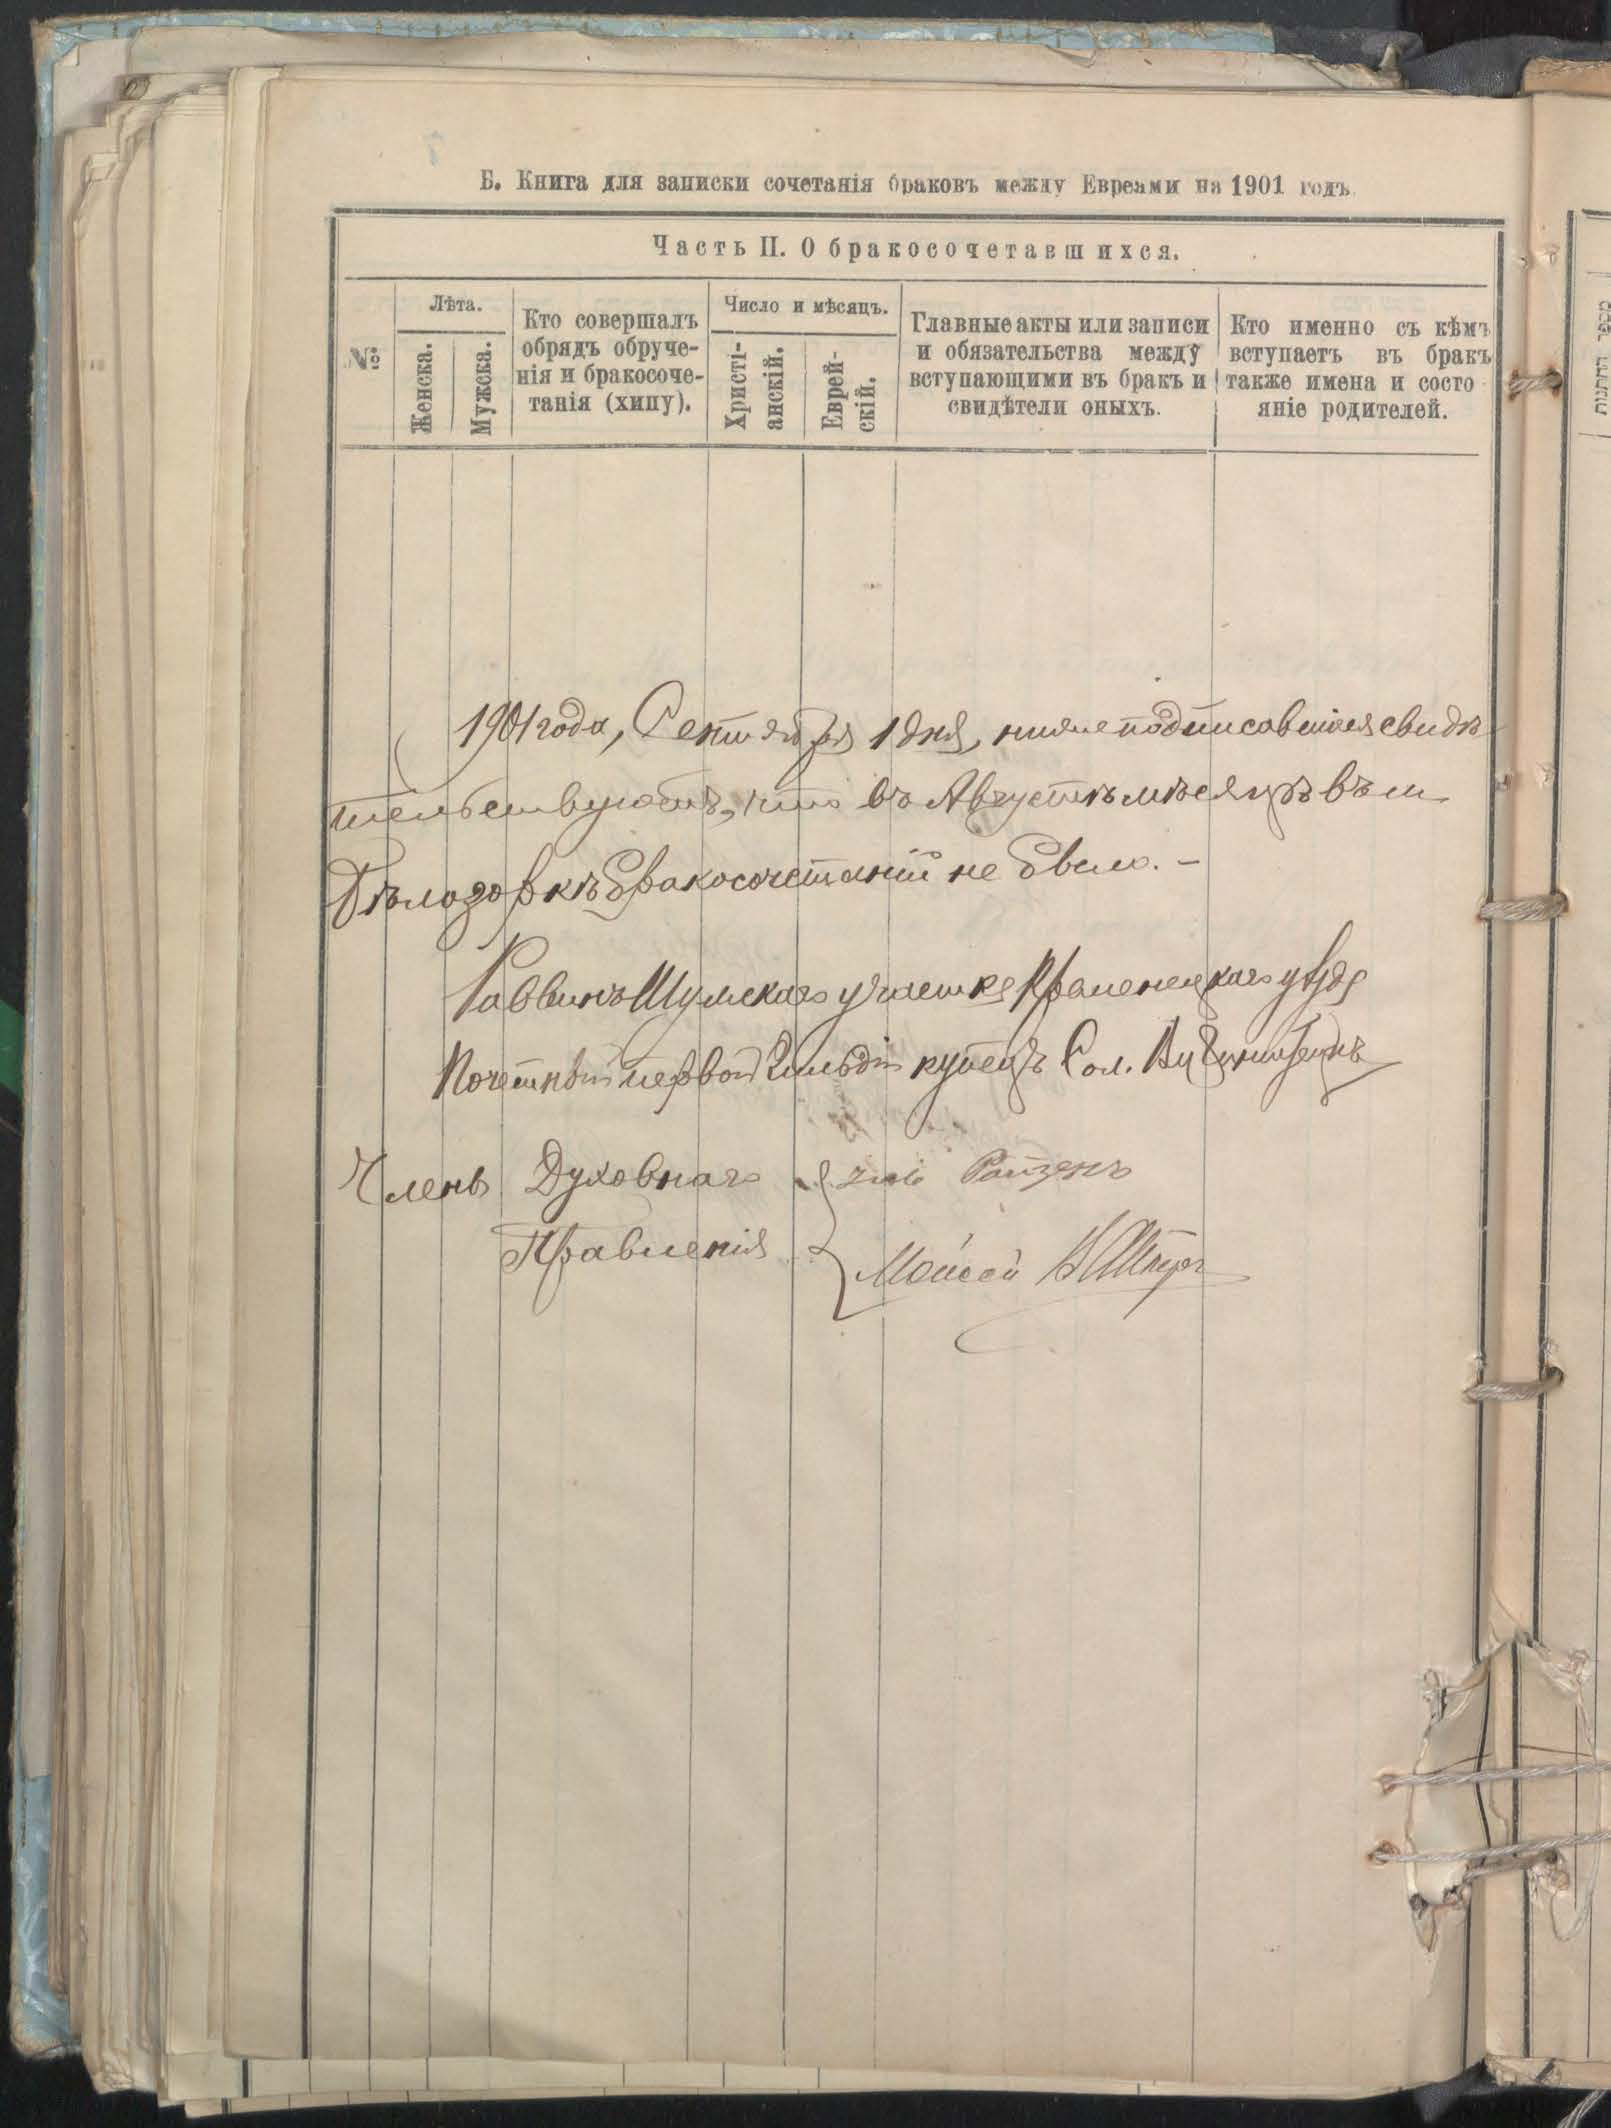 Б. Книга для записки сочетанія браковъ между Евреями на 1901 годъ
Часть II. О бракосочетавшихся.
№
Лѣта.
Женска.
Мужска.
Кто совершалъ
обрядъ обруче-
нія и бракосоче-
танія (хипу).
Число и мѣсяцъ.
Христі-
анскій.
Еврей-
скій.
Главные акты или записи
и обязательства между
вступающими въ бракъ и
свидѣтели оныхъ.
Кто именно съ кѣмъ
вступаетъ въ бракъ
также имена и состо
яніе родителей.
1901 года, Сентября 1 дня, нижеподписавшіеся свидѣ
тельствуютъ, что въ Августѣ мѣсяцѣ въ м
Бѣлозоркѣ бракосочетаній не было. –
Раввинъ Шумскаго участка Кременецкаго уѣзда
Почетный первой Гильдіи купецъ Сол.
Члены Духовнаго
Правленія
Ройзенъ
Мойсей